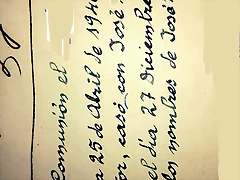 Comunión el
a 25 de Abril de 194
or, casó con José
el día 27 Diciembre
los nombres de José